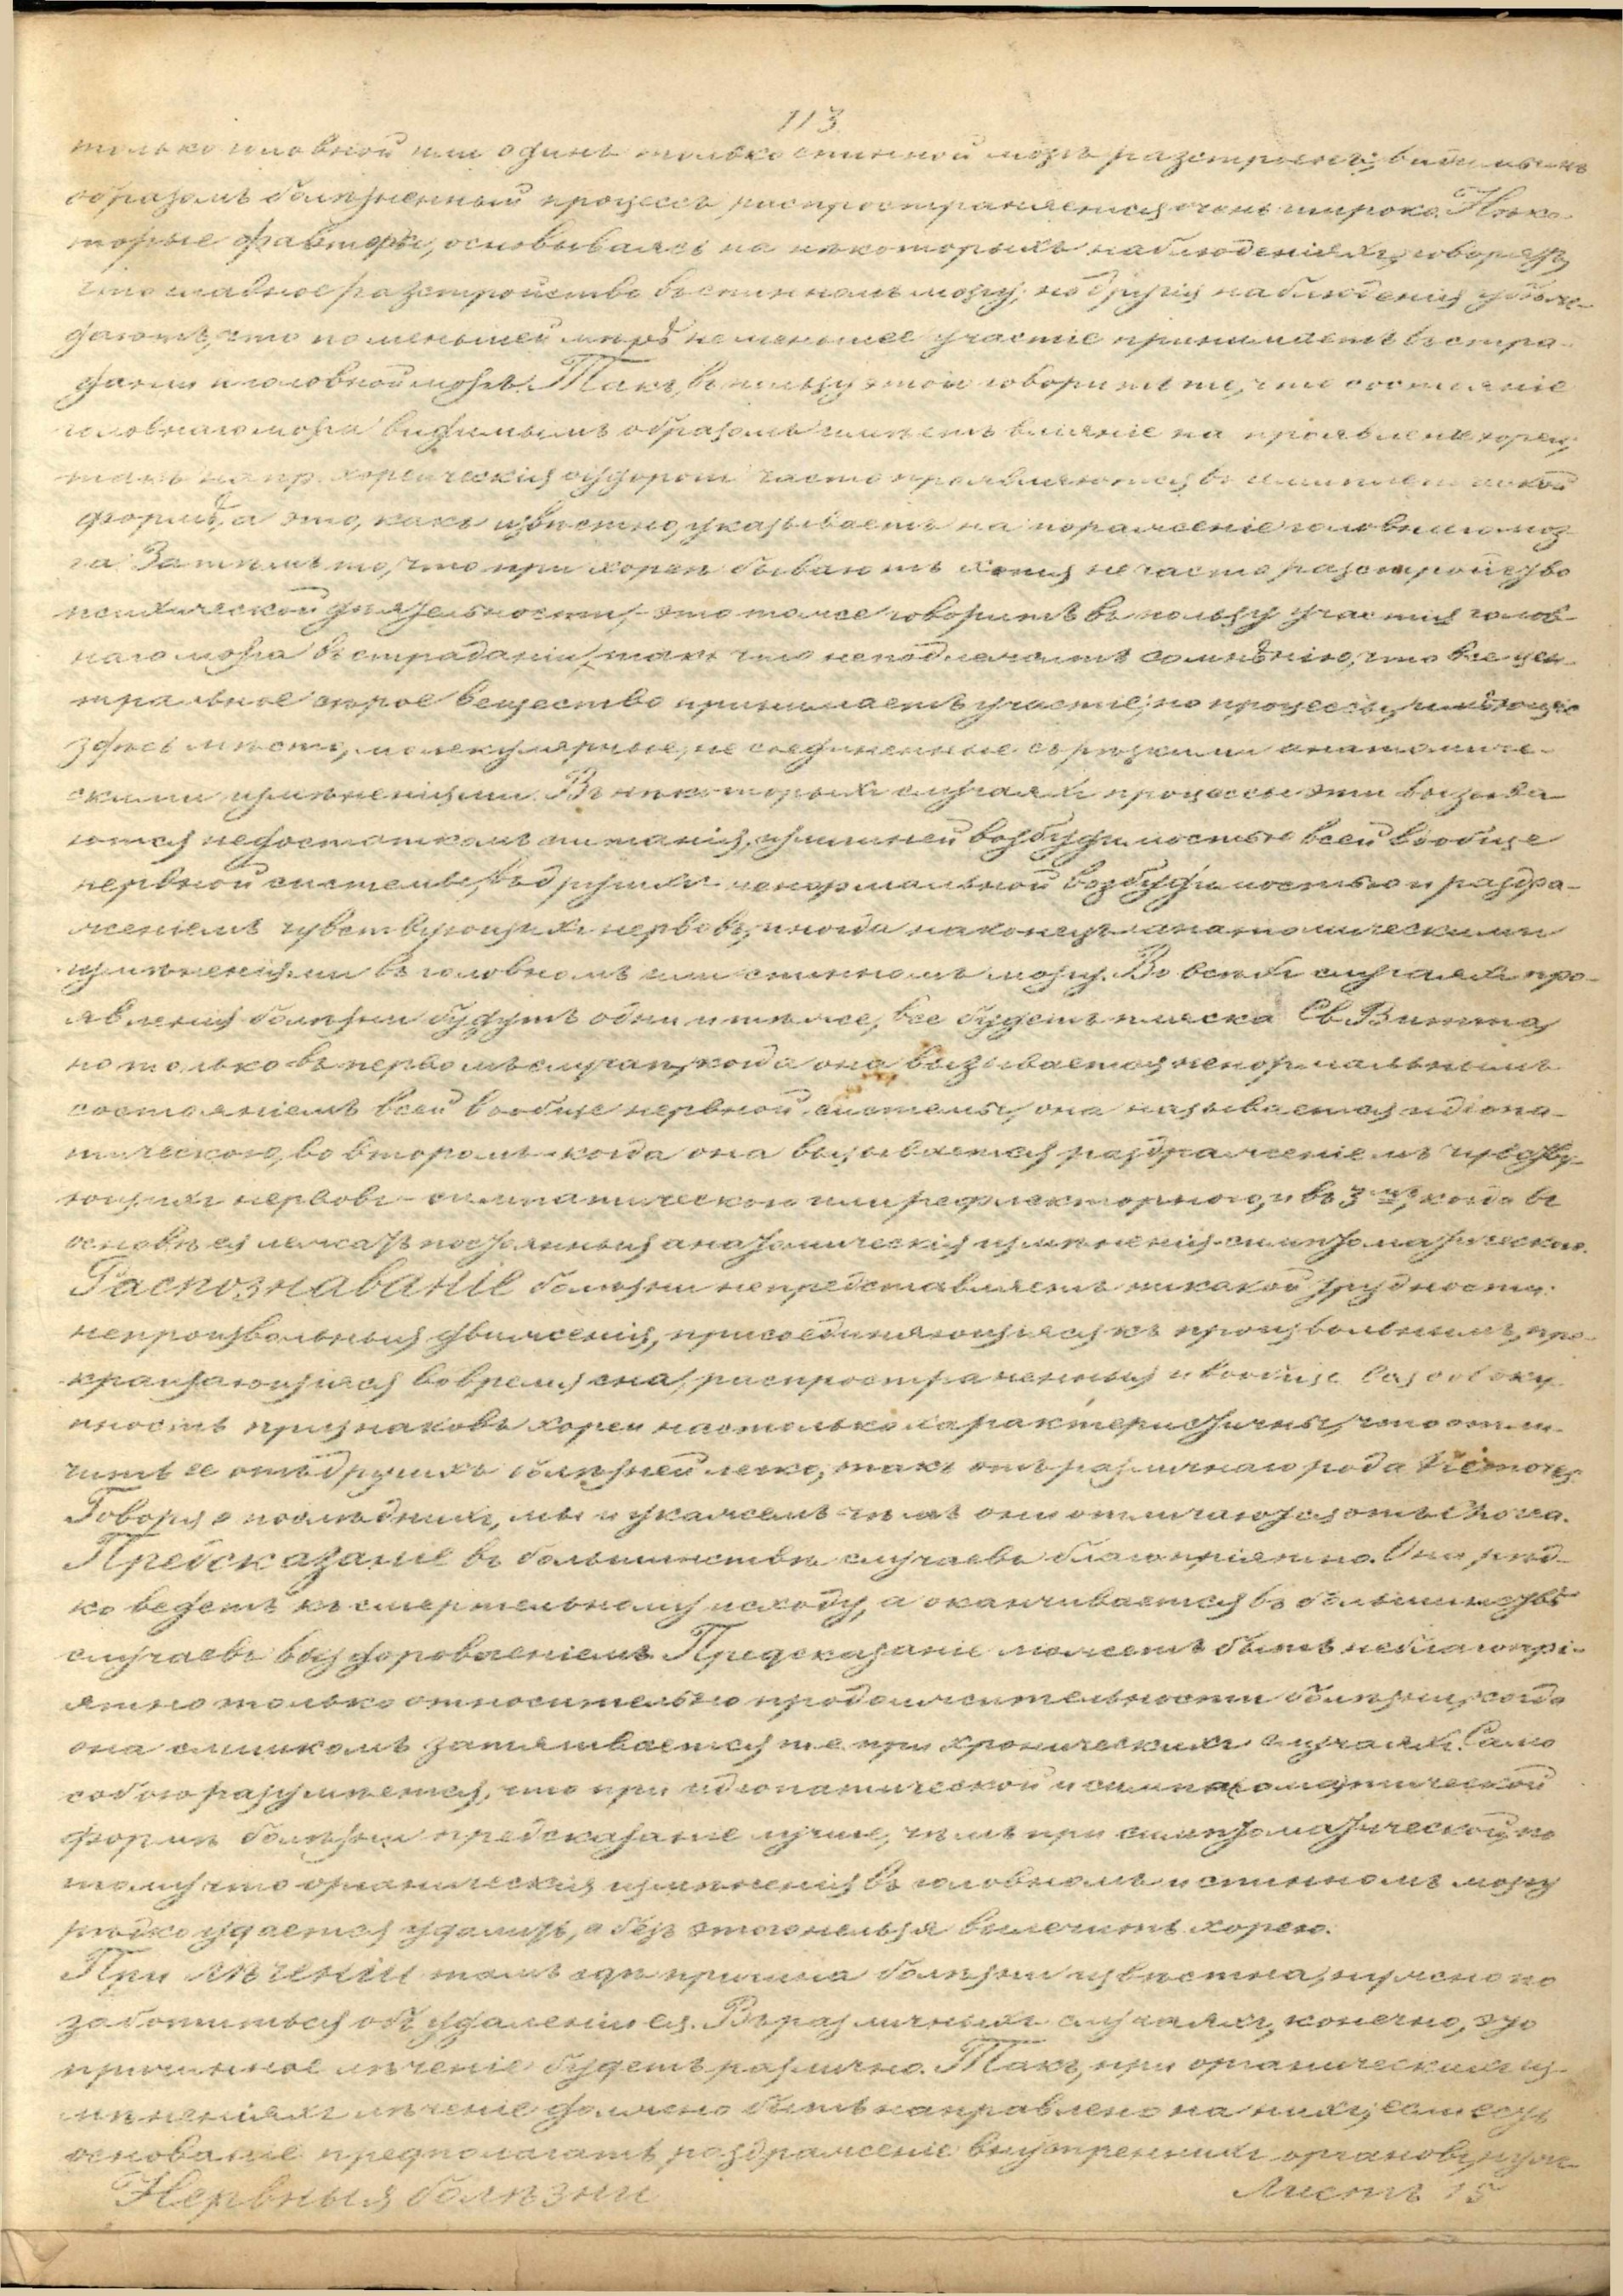 113
только головной или одинъ только спинной мозгъ разстроенъ; видимымъ
образомъ болѣзненный процессъ распространяется очень широко. Нѣко-
торые факторы, основываясь на нѣкоторыхъ наблюденіяхъ, говорятъ,
что главное разстройство въ спинномъ мозгу; но другія наблюденія убѣж-
даютъ, что по меньшей мѣрѣ не меньшее участіе принимаетъ въ стра-
даніи и головной мозгъ. Такъ, въ пользу этого говоритъ то, что состояніе
головнаго мозга видимымъ образомъ имѣетъ вліяніе на проявленіе хореи;
такъ напр. хореическія судороги часто проявляются въ
формѣ, а это, какъ извѣстно, указываетъ на пораженіе головнаго моз-
га. Затѣмъ то, что при хореѣ бываютъ хотя не часто разстройство
психической дѣятельности, – это тоже говоритъ въ пользу участія голов-
наго мозга въ страданіи, такъ что не подлежитъ сомнѣнію, что все цен-
тральное сѣрое вещество принимаетъ участіе; но процессы, имѣющіе
здѣсь мѣсто, молекулярные, не соединенные съ рѣзкими анатомиче-
скими измѣненіями. Въ нѣкоторыхъ случаяхъ процессы эти вызыва-
ются недостаткомъ питанія, излишней возбудимостью всей вообще
нервной системы, въ другихъ ненормальной возбудимостью и раздра-
женіемъ чувствующихъ нервовъ, иногда наконецъ анатомическими
измѣненіями въ головномъ или спинномъ мозгу. Во всѣхъ случаяхъ про-
явленія болѣзни будутъ одни и тѣже, все будетъ пляска Св. Витта,
но только въ первомъ случаѣ, когда она вызывается ненормальнымъ
состояніемъ всей вообще нервной системы, она называется идіопа-
тическою, во второмъ – когда она вызывается раздраженіемъ чувству-
ющихъ нервовъ – симпатическою или рефлекторною, и въ 3мъ, когда въ
основѣ ея лежатъ постоянныя анатомическія измѣненія – симптоматическою.
Распознаваніе болѣзни не представляетъ никакой трудности:
непроизвольныя движенія, присоединяющіяся къ произвольнымъ, пре-
кращающіяся во время сна, распространенныя и вообще вся совоку-
пность признаковъ хореи настолько характеристичны, что отли-
чить ее отъ другихъ болѣзней легко, такъ отъ различнаго рода tremores.
Говоря о послѣднихъ, мы и укажемъ чѣмъ они отличаются отъ Chorea.
Предсказаніе въ большинствѣ случаевъ благопріятно. Она рѣд-
ко ведетъ къ смертельному исходу, а оканчивается въ большинствѣ
случаевъ выздоровленіемъ. Предсказаніе можетъ быть неблагопрі-
ятно только относительно продолжительности болѣзни, когда
она слишкомъ затягивается т. е. при хроническихъ случаяхъ. Само
собою разумѣется, что при идіопатической и симпатической
формѣ болѣзни предсказаніе лучше, чѣмъ при симптоматической, по
тому что органическія измѣненія въ головномъ и спинномъ мозгу
рѣдко удается удалить, а безъ этого нельзя вылечить хорею.
При лѣченіи тамъ гдѣ причина болѣзни извѣстна, нужно по
заботиться объ удаленіи ея. Въ различныхъ случаяхъ, конечно, это
причинное лѣченіе будетъ различно. Такъ, при органическихъ из-
мѣненіяхъ лѣченіе должно быть направлено на нихъ; если есть
основаніе предполагать раздраженіе внутреннихъ органовъ,
Нервныя болѣзни
Листъ 15